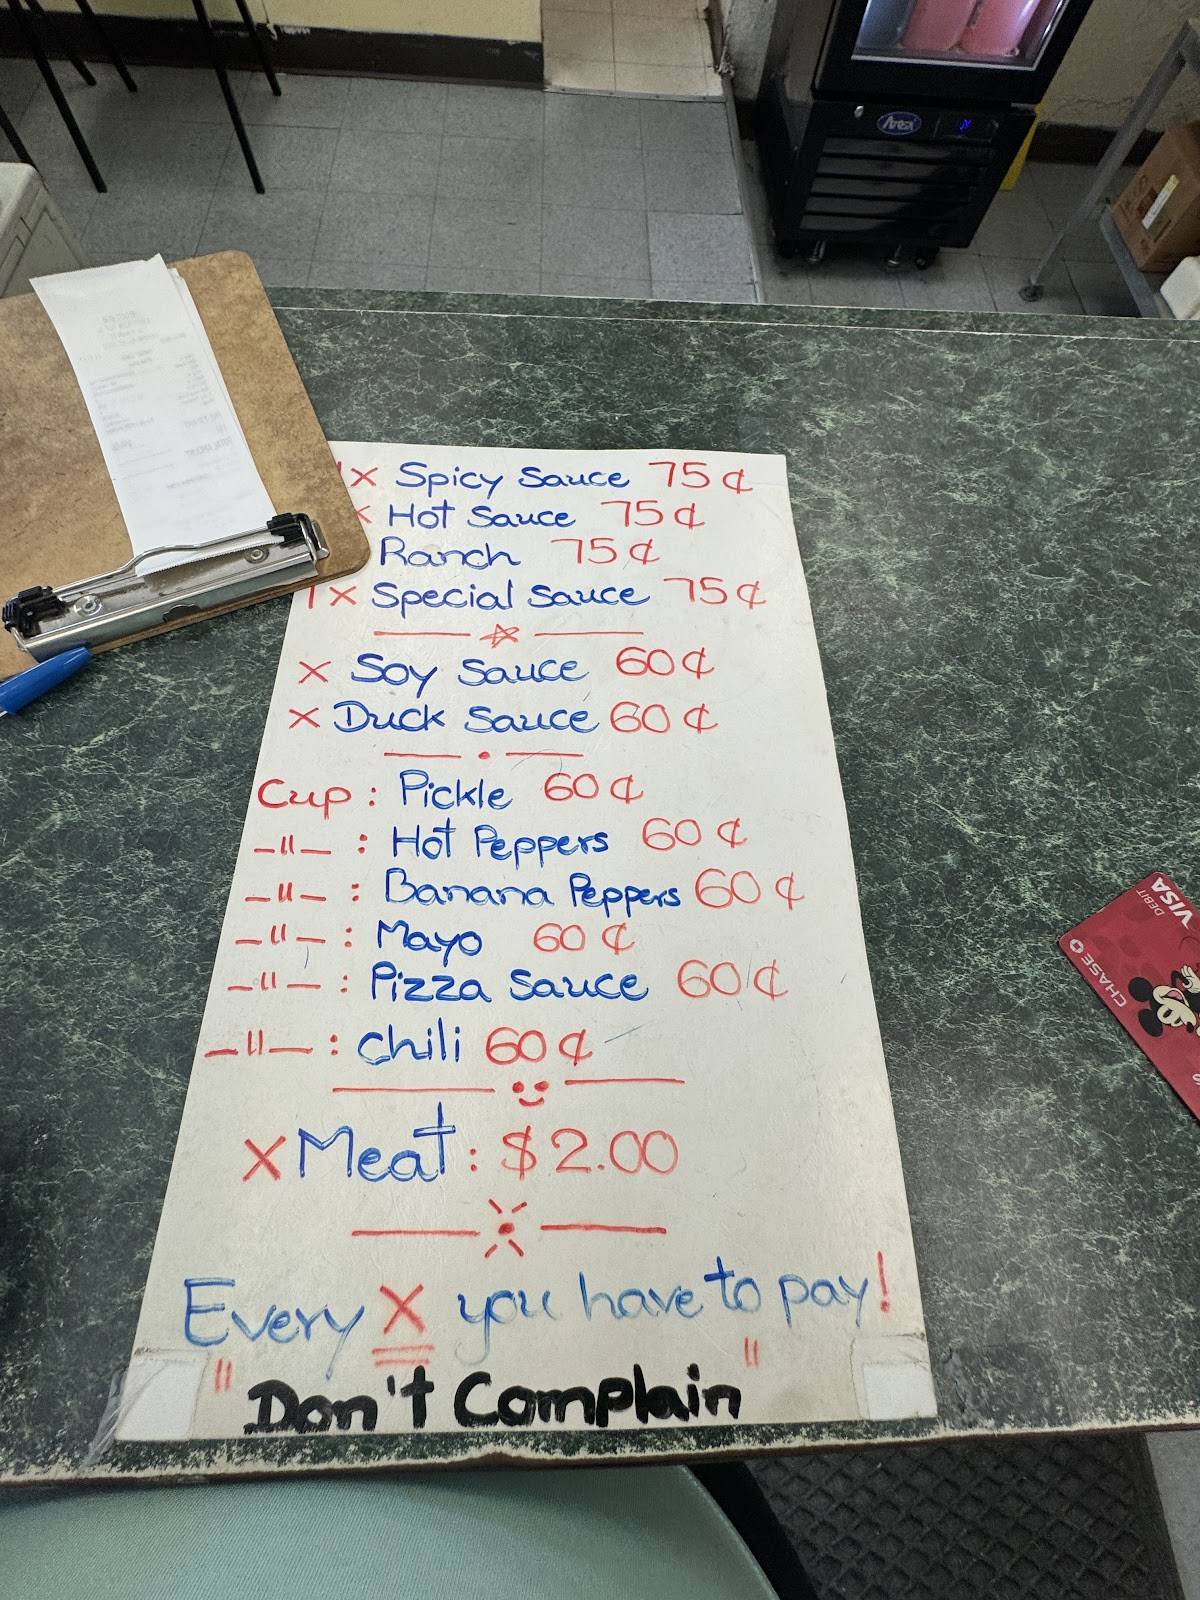 Artex
1x Spicy Sauce 75¢
x Hot Sauce 75¢
Ranch 75¢
1x Special Sauce 75¢
x Soy Sauce 60¢
x Duck Sauce 60¢
Cup : Pickle 60¢
–"– : Hot Peppers 60¢
–"– : Banana Peppers 60¢
–"– : Mayo 60¢
–"– : Pizza Sauce 60¢
–"– : Chili 60¢
x Meat : $2.00
Every X you have to pay!
"Don't Complain"
VISA
DEBIT
CHASE